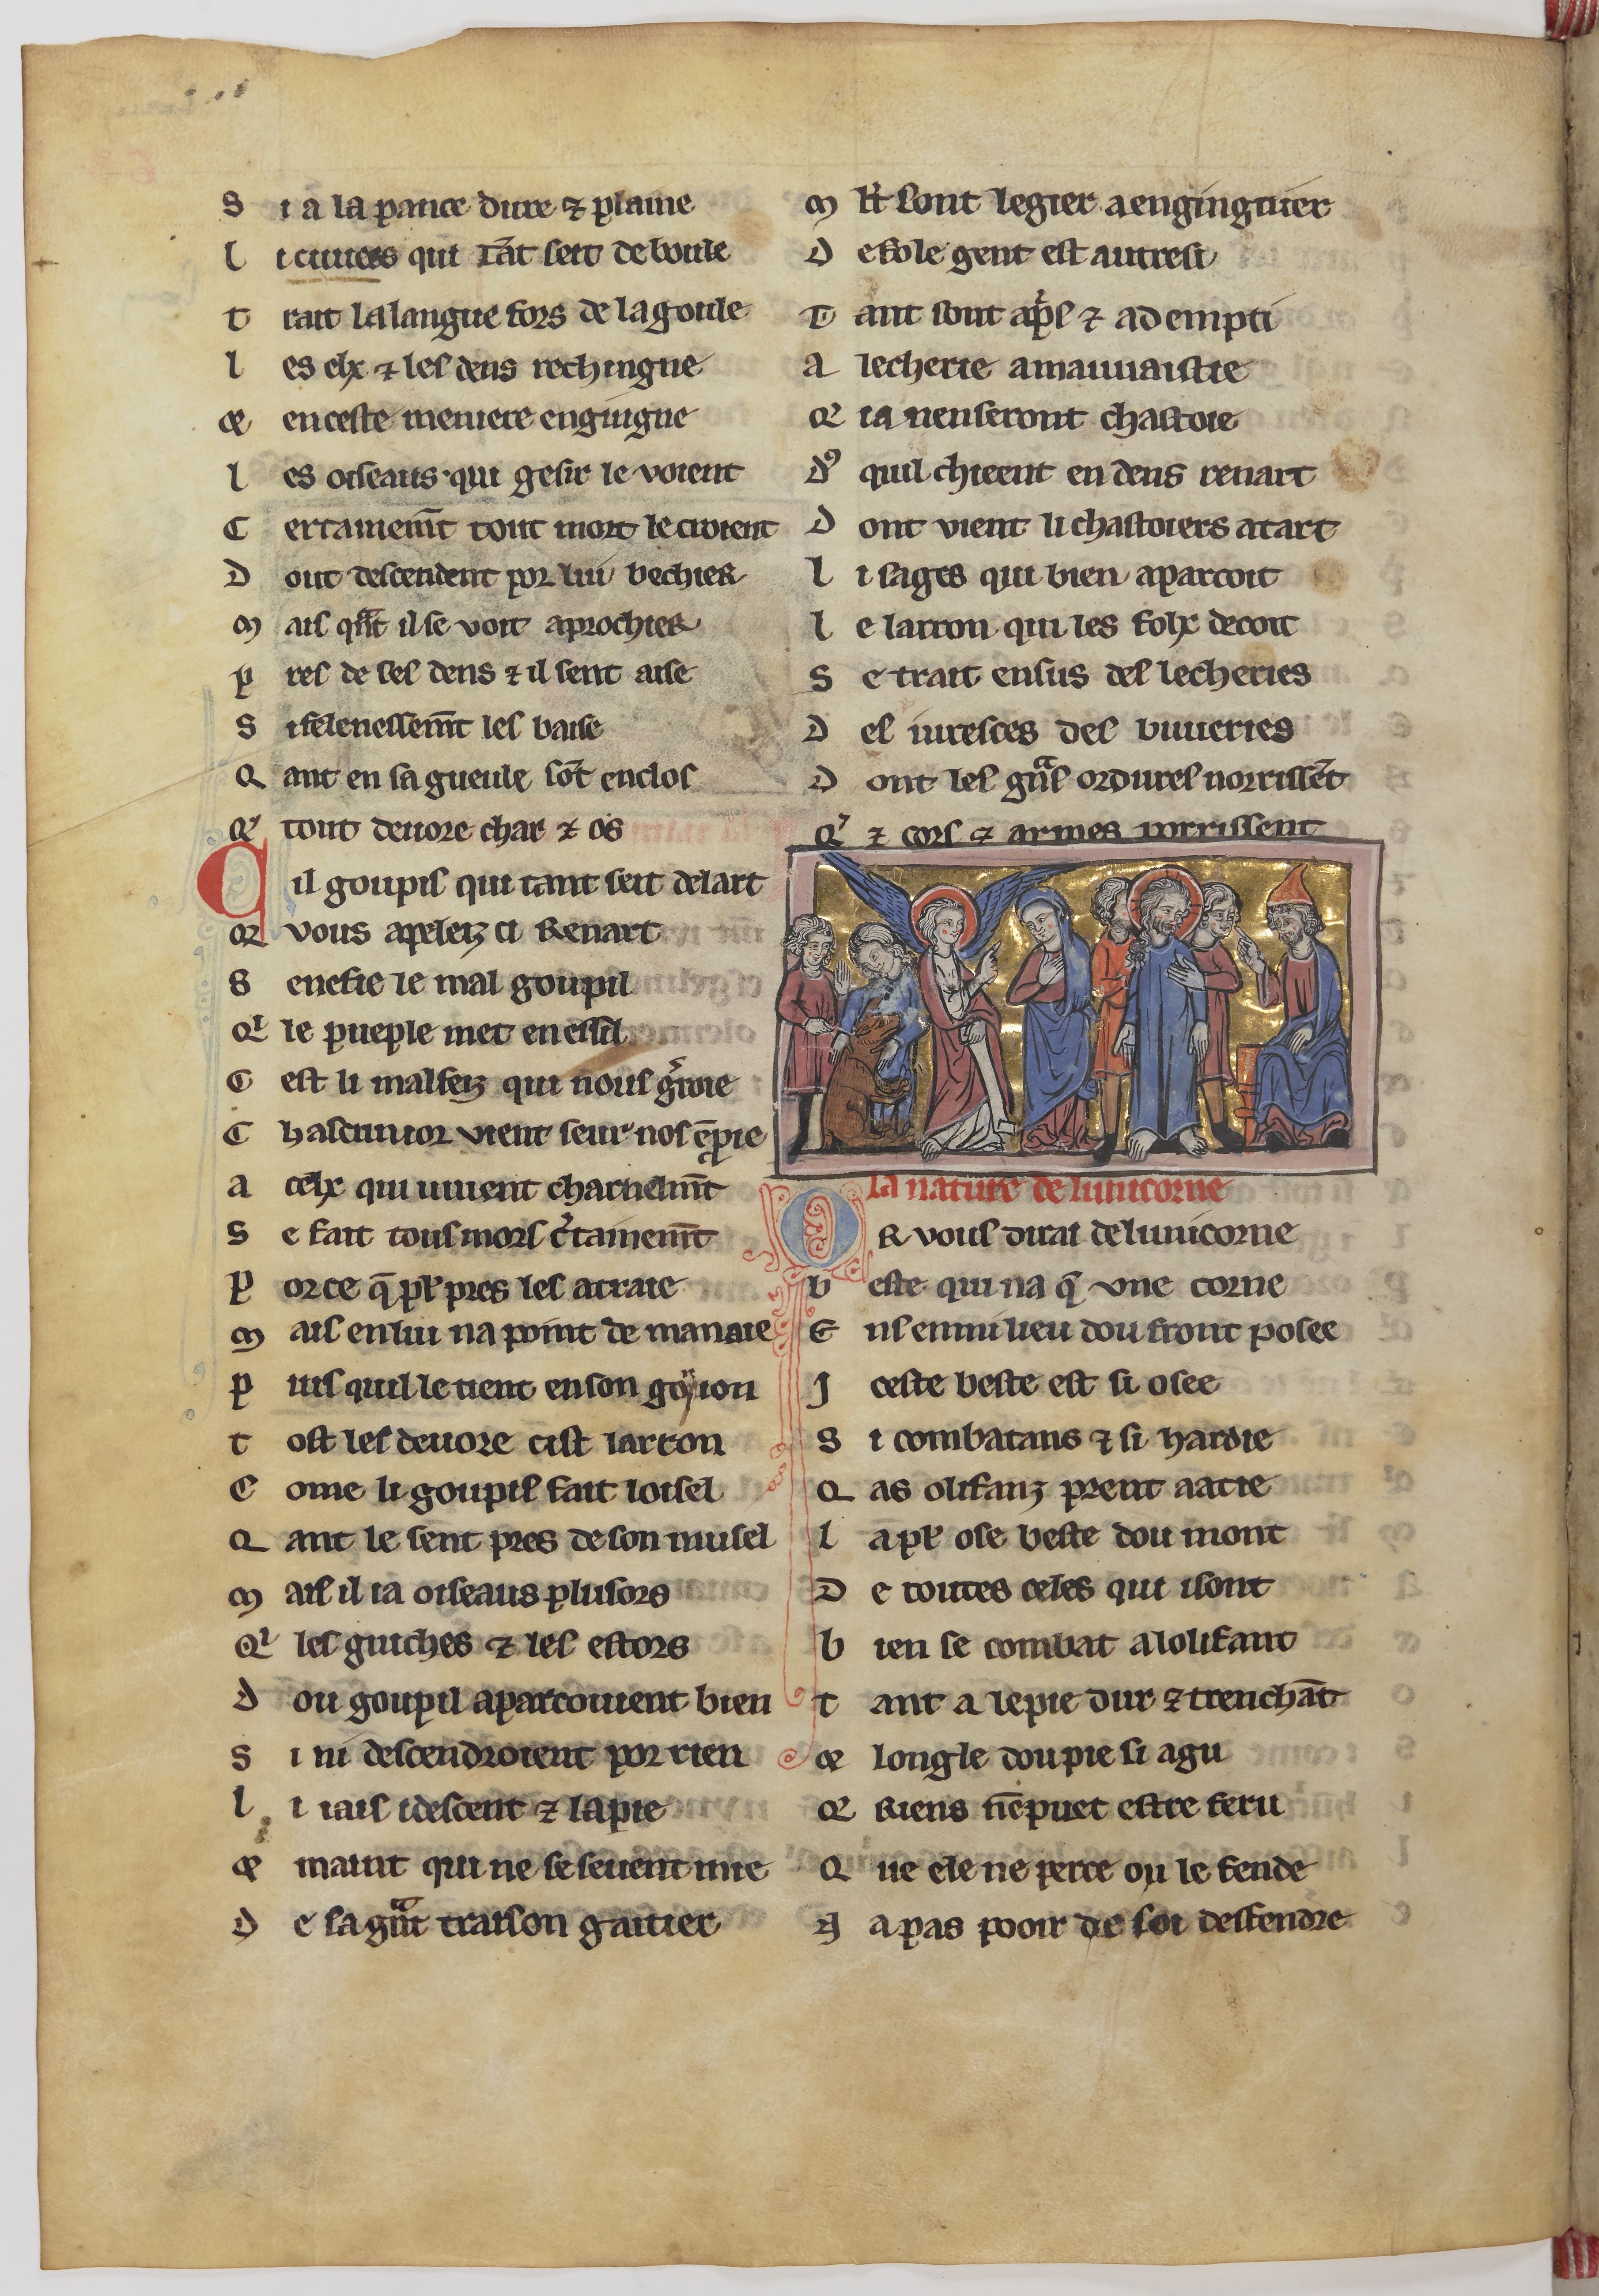 S i a la pance dure ⁊ plaine
L i cuuers qui tāt seit de boule
T rait la langue fors de la goule
L es elx ⁊ les dens rechingne
⁊ en ceste meniere enguigne
L es oiseaus qui gesir le voient
C ertainemēt tout mort le croient
D ont descendent por lui bechier
M ais qᵃnt il se voit aprochier
P res de ses dens ⁊ il sent aise
S i felenessemēt les baise
Q ant en sa gueule sōt enclos
Qⁱ tout deuore char ⁊ os
C il goupis qui tant seit delart
Q̄ vous apeleiz ci Renart
S enefie le mal goupil
Qⁱ le pueple met en essil
C est li malfeiz qui nous gᵉroie
C hascun ior vient seur nos ē proie
A celx qui uiuent charnelmēt
S e fait tous mors c̓tainemēt
P or ce q̄ pl̓ pres les atraie
M ais en lui na point de manaie
P uis quil le tient en son goiron
T ost les deuore cist larron
C ome li goupil fait loisel
Q ant le sent pres de son musel
M ais il ia oiseaus plusors
Qⁱ les guiches ⁊ les estors
D ou goupil aparcoiuent bien
S i ni descendroient por rien
L i iais i descent ⁊ la pie
⁊ maint qui ne se seuent mie
D e sa gᵃnt traison gaitier
M l̓t sont legier a enginguier
D e fole gent est autresi
T ant sont ap̓s ⁊ ad empti
A lecherie a mauuaistie
Q̄ ia nen seront chastoie
D⁹ quil chieent en dens renart
D ont vient li chastoiers a tart
L i sages qui bien aparcoit
L e larron qui les folx decoit
S e trait ensus des lecheries
D es iuresces des buueries
D ont les gᵃns ordures norrissēt
Qⁱ ⁊ cors ⁊ armes porrissent
la nature de lunicorne
O R vous dirai de lunicorne
B este qui na q̄ vne corne
E ns enmi lieu dou front posee
J ceste beste est si osee
S i combatans ⁊ si hardie
Q as olifanz prent aatie
L a pl̓ ose beste dou mont
D e toutes celes qui i sont
B ien se combat a lolifant
T ant a le pie dur ⁊ trenchāt
⁊ longle dou pie si agu
Q̄ Riens nē puet estre feru
Q ue ele ne perce ou le fende
N a pas pooir de soi desfendre